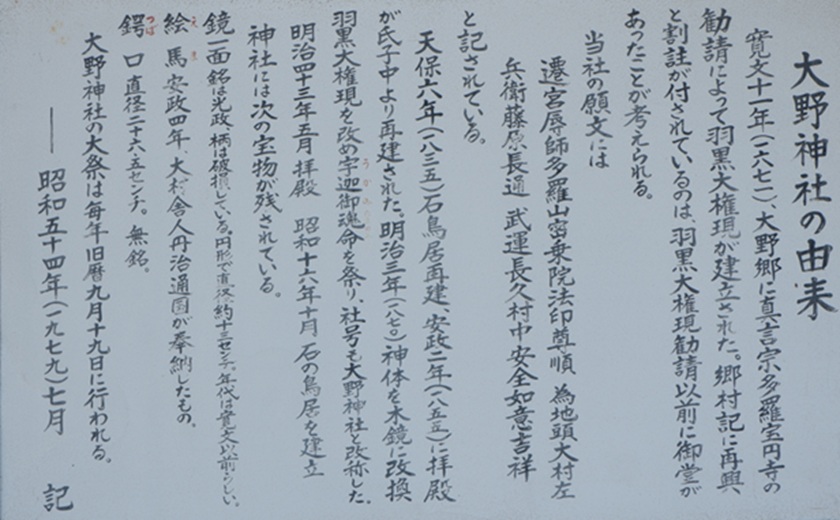 大野神社の由来
寛文十一年(一六七一)、大野郷に真言宗多羅宝円寺の
勧請によって羽黒大権現が建立された。郷村記に再興
と割註が付されているのは、羽黒大権現勧請以前に御堂が
あったことが考えられる。
当社の願文には
遷宮辱師多羅山密乗院法印尊順 為地頭大村左
兵衛藤原長通 武運長久村中安全如意吉祥
と記されている。
天保六年(一八三五)石鳥居再建、安政二年(一八五五)に拝殿
が氏子中より再建された。明治三年(一八七〇)神体を木鏡に改換
羽黒大権現を改め宇迦御魂命を祭り、社号も大野神社と改称した。
明治四十三年五月拝殿 昭和十六年十月 石の鳥居を建立
神社には次の宝物が残されている。
鏡一面 銘は光政、柄は破損している。円形で直径約十三センチ。年代は寛文以前らしい。
絵馬 安政四年、大村舎人丹治通固が奉納したもの。
鍔口 直径二十六・五センチ。無銘。
大野神社の大祭は毎年旧暦九月十九日に行われる。
――昭和五十四年(一九七九)七月 記